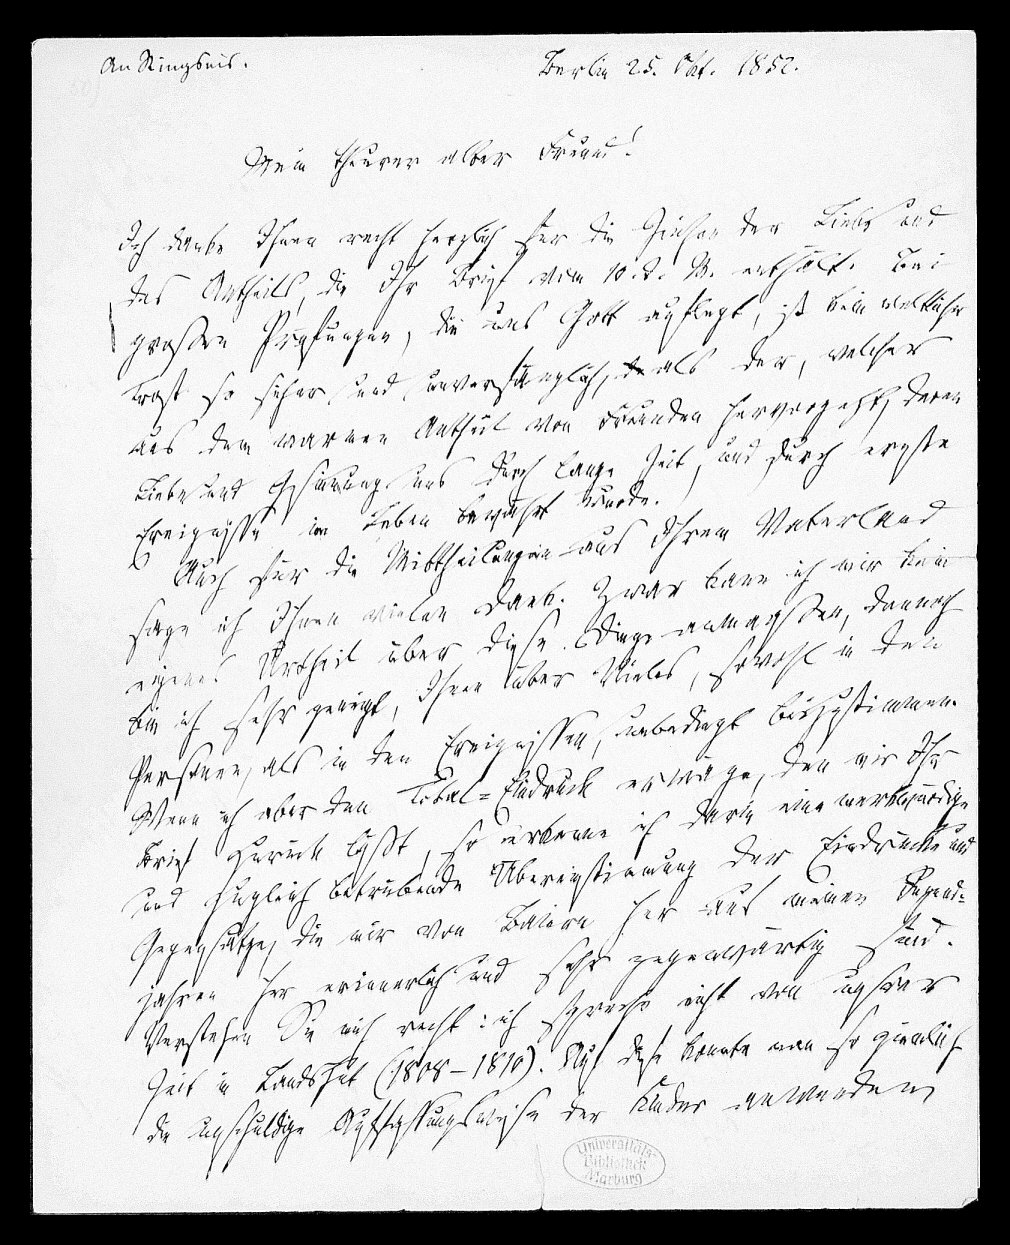 An Ringseis.
Berlin 25. Okt. 1852.
Mein theurer alter Freund!
Ich danke Ihnen recht herzlich für die Zeichen der Liebe und
des Antheils, die Ihr Brief vom 10. d. M. enthält. Bei
großen Prüfungen, die uns Gott auflegt, ist kein weltlicher
Trost so sicher und unverfänglich, als der, welcher
aus dem warmen Antheil von Freunden hervorgeht, deren
Liebe und Gesinnung uns durch lange Zeit, und durch ernste
Ereignisse im Leben bewährt wurde.
Auch für die Mittheilungen aus Ihrem Vaterland
sage ich Ihnen vielen Dank. Zwar kann ich mir kein
eigenes Urtheil über diese Dinge anmaßen, dennoch
bin ich sehr geneigt, Ihnen über Vieles, sowohl in den
Personen, als in den Ereignissen, unbedingt beizustimmen.
Wenn ich aber den Total=Eindruck erwäge, den mir Ihr
Brief zurück läßt, so erkenne ich darin eine merkwürdige
und zugleich betrübende Übereinstimmung der Eindrücke und
Gegensätze, die mir von Baiern her aus meinen Jugend=
jahren her erinnerlich und sehr gegenwärtig sind.
Verstehen Sie mich recht: ich spreche nicht von unsrer
Zeit in Landshut (1808–1810). Auf diese konnte man so ziemlich
die unschuldige Auffassungsweise der Kinder anwenden,
Universitäts-
Bibliothek
Marburg